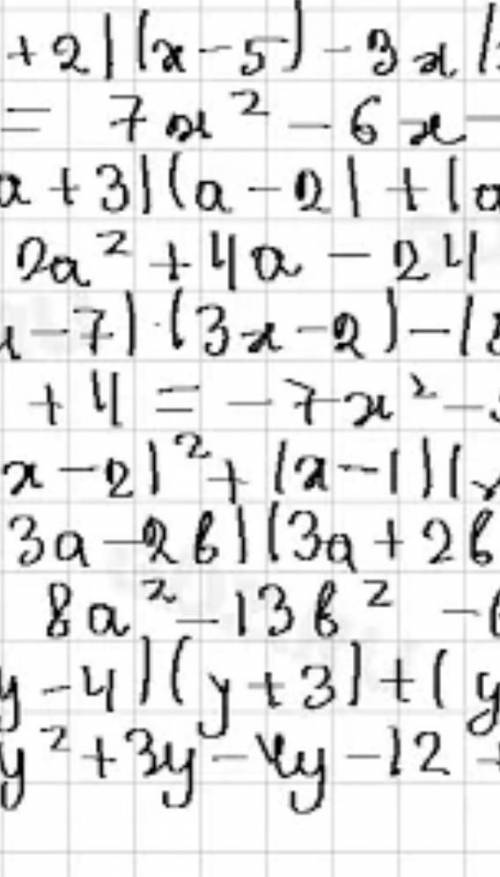 +2)(x-5)-3x(
= 7x² - 6x -
a+3)(a-2)+(a
2a² + 4a - 24
x-7)·(3x-2)-(8
+4 = -7x² -
x-2)² + (x-1)(x
3a-2b)(3a+2b
8a² - 13b² -
y-4)(y+3)+(y
y² + 3y - 4y - 12 +